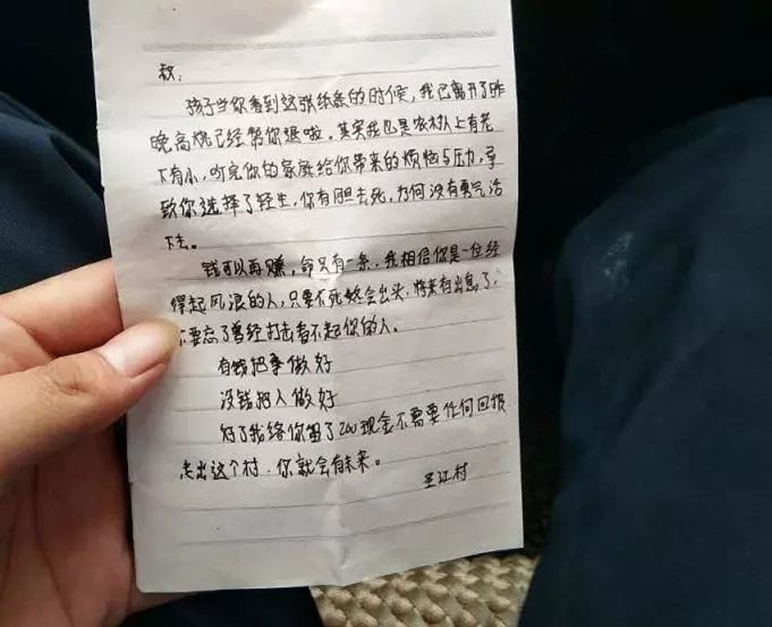 叔:
孩子当你看到这张纸条的时候,我已离开了昨
晚高烧已经帮你退啦。其实我也是农村人上有老
下有小,听完你的家庭给你带来的烦恼与压力,导
致你选择了轻生,你有胆去死,为何没有勇气活
下去。
钱可以再赚,命只有一条.我相信你是一位经
得起风浪的人,只要不死终会出头.将来有出息了,
不要忘了曾经打击看不起你的人.
有钱把事做好
没钱把人做好
好了我给你留了200现金不需要任何回报
走出这个村.你就会有未来。
江村